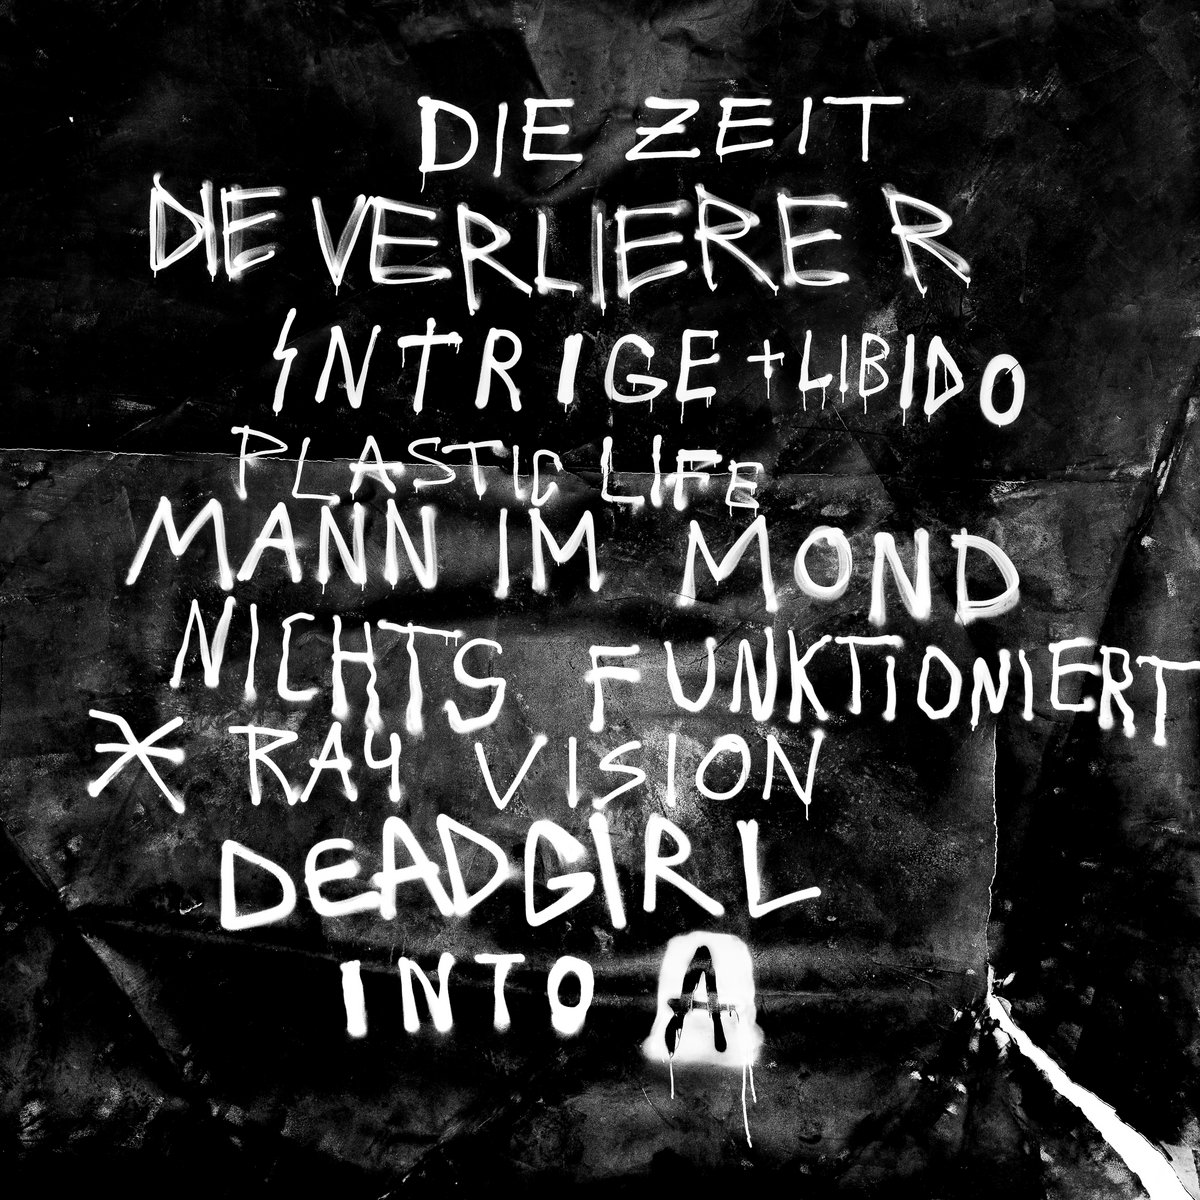 DIE ZEIT
DIE VERLIERER
INTRIGE + LIBIDO
PLASTIC LIFE
MANN IM MOND
NICHTS FUNKTIONIERT
X RAY VISION
DEADGIRL
INTO A